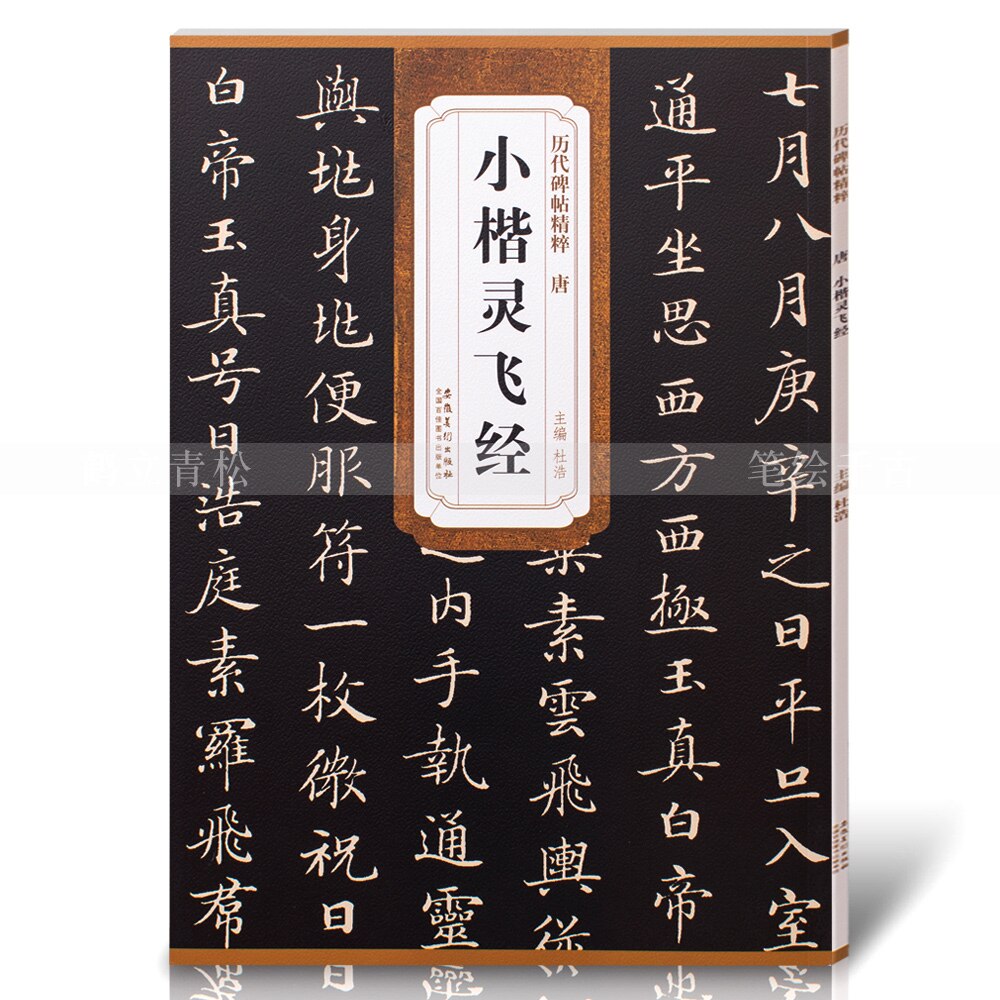 七月八月庚辛之日平旦入室
通平坐思西方西極玉真白帝
素雲飛輿從
内手執通靈
與兆身兆便服符一枚微祝曰
白帝玉真号曰浩庭素羅飛帬
历代碑帖精粹 唐
小楷灵飞经
主编 杜浩
安徽美术出版社
全国百佳图书出版单位
历代碑帖精粹 唐 小楷灵飞经 主编 杜浩
青松
笔绘千古